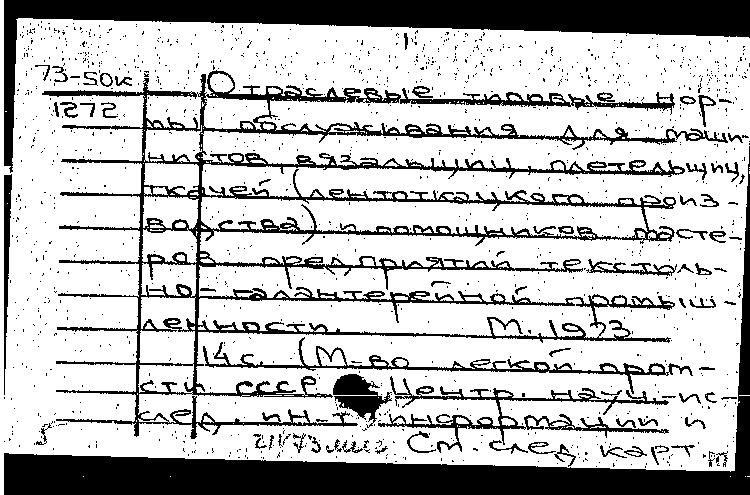 73-50к
1272
Отраслевые типовые нор-
мы обслуживания для маши-
нистов, вязальщиц, плетельщиц,
ткачей (лентоткацкого произ-
водства) и помощников масте-
ров предприятий текстиль-
но-галантерейной промыш-
ленности. М., 1973
14 с. (М-во легкой пром-
сти СССР. Центр. науч.-ис-
след. ин-т информации и
См. след. карт.